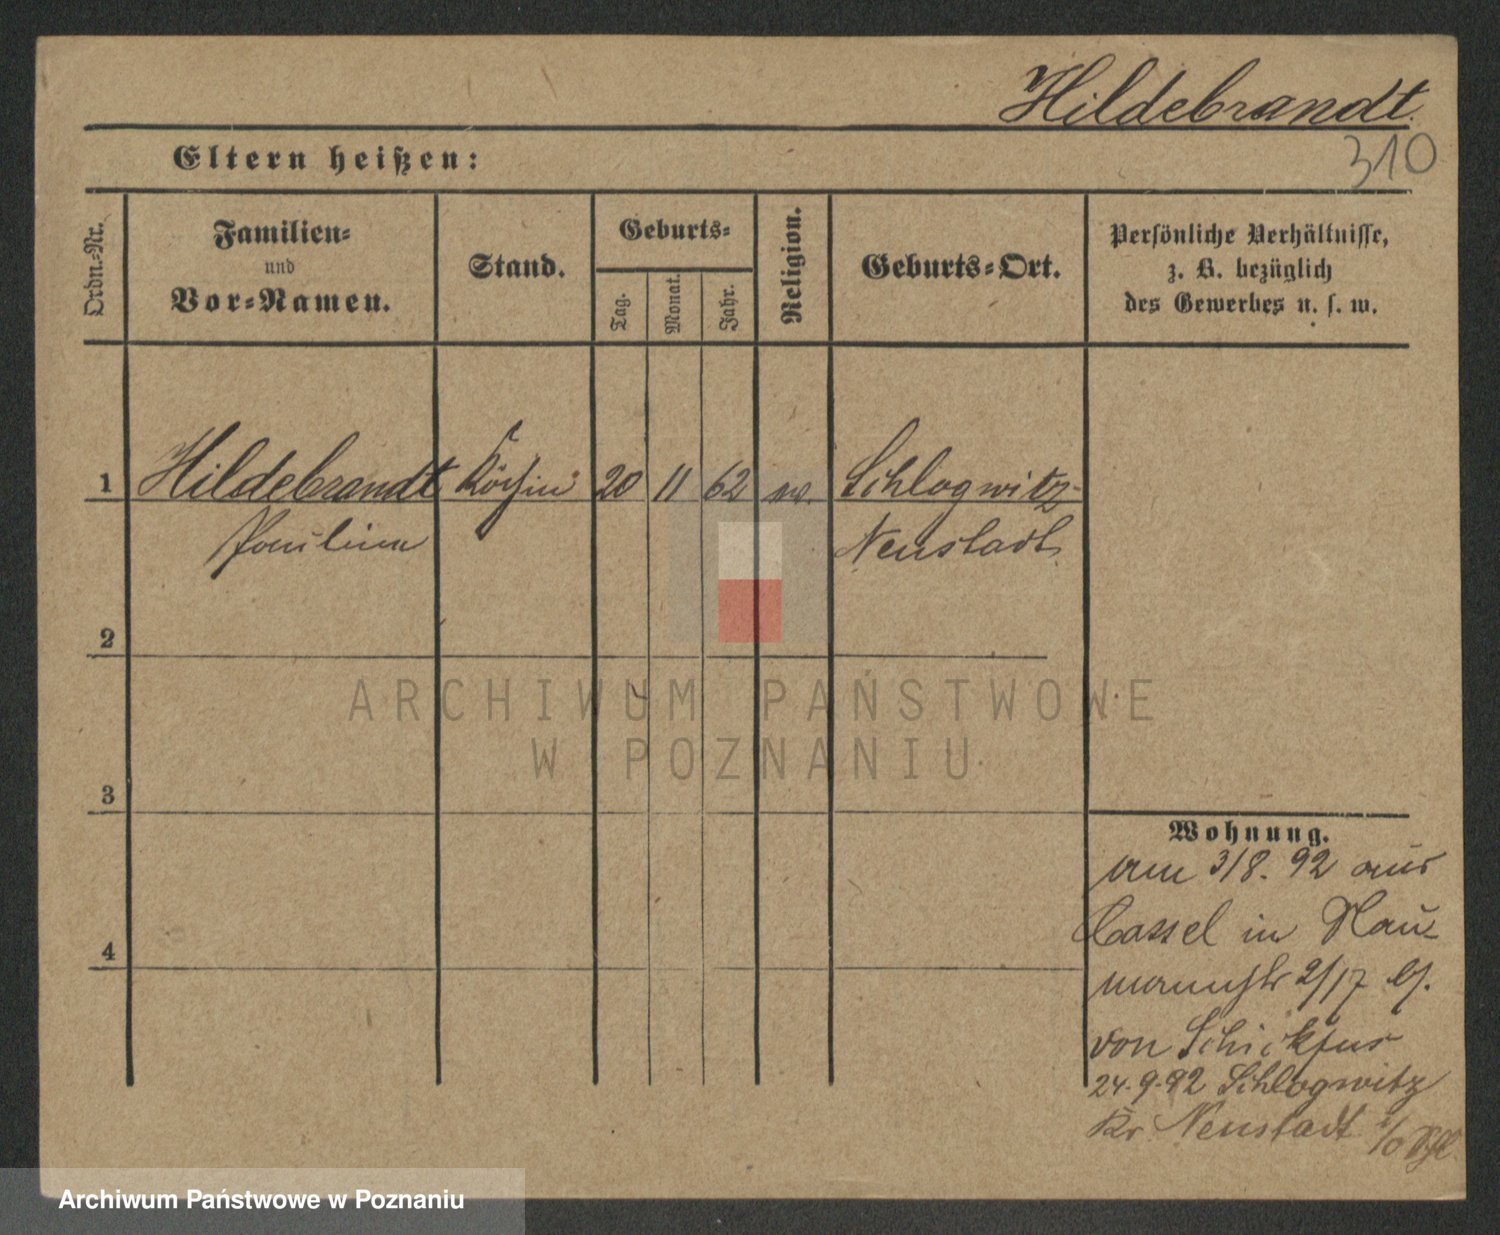 Hildebrandt.
310
Eltern heißen:
Ordn.-Nr.
Familien-
und
Vor-Namen.
Stand.
Geburts-
Tag.
Monat.
Jahr.
Religion.
Geburts-Ort.
Persönliche Verhältnisse,
z. B. bezüglich
des Gewerbes u. s. w.
1 Hildebrandt Köchin 20 11 62 Schlogwitz-
Pauline Neustadt
2
ARCHIWUM PAŃSTWOWE
W POZNANIU
3
Wohnung.
am 3/8. 92 aus
Cassel in Nau-
mannstr 2/17 bs.
von Schickfus
24.9.92 Schlogwitz
Kr Neustadt
4
Archiwum Państwowe w Poznaniu